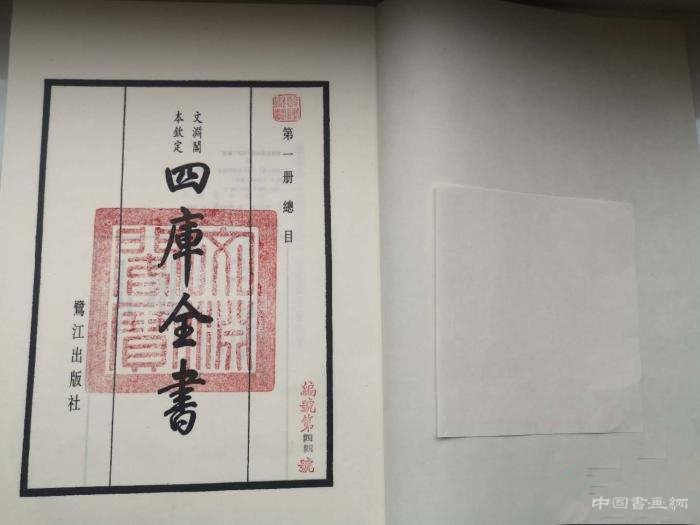 第一册總目
文淵閣
本欽定
四庫全書
鷺江出版社
文淵閣寶
編號第四號
中国書画網